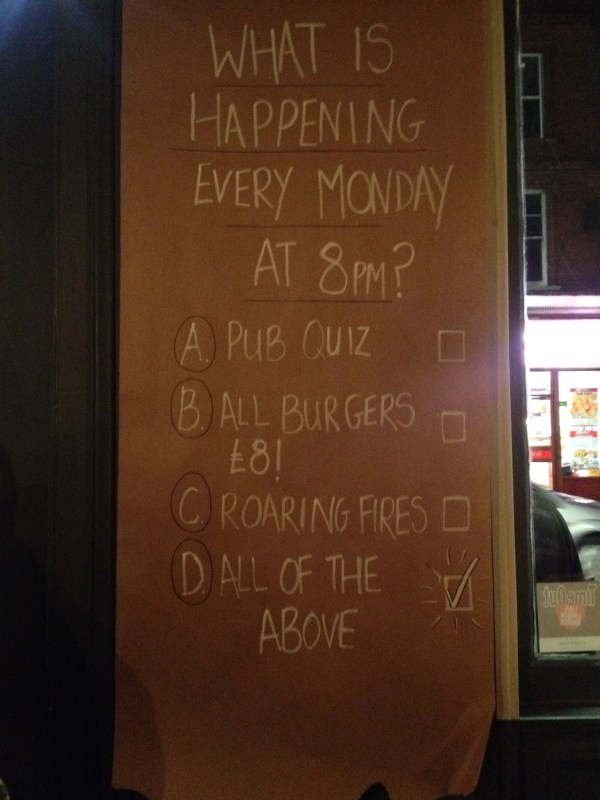 WHAT IS
HAPPENING
EVERY MONDAY
AT 8PM?
A. PUB QUIZ
B. ALL BURGERS
£8!
C. ROARING FIRES
D. ALL OF THE
ABOVE
TimeOut